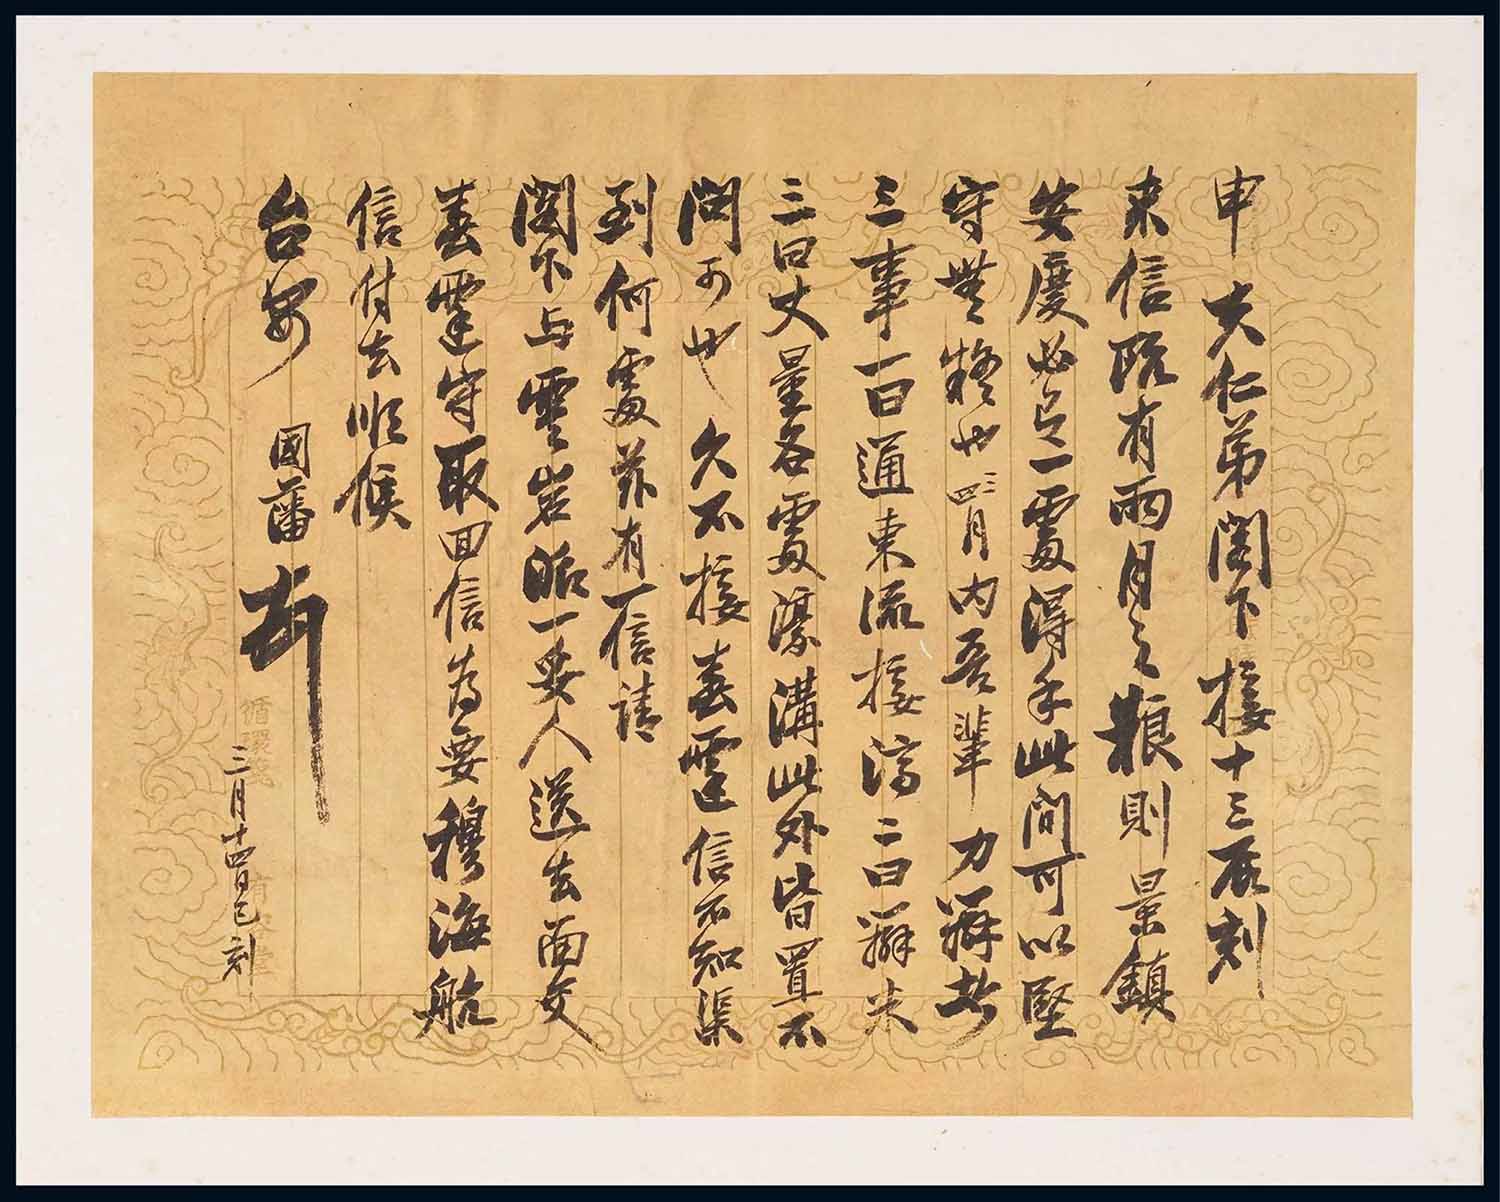 申夫仁弟閣下接十三辰刻
來信既有兩月之糧則景鎮
安慶必已一處得手此間可以堅
守無疑也三四月內吾輩力辦此
三事一曰通東流接濟二曰辦米
三曰丈量各處濠溝此外皆置不
問可也久不接春霆信不知渠
到何處茲有一信請
閣下與雲岩派一妥人送去面交
春霆守取回信為要穆海航
信付去順候
台安 國藩頓
三月十四日巳刻
循環箋